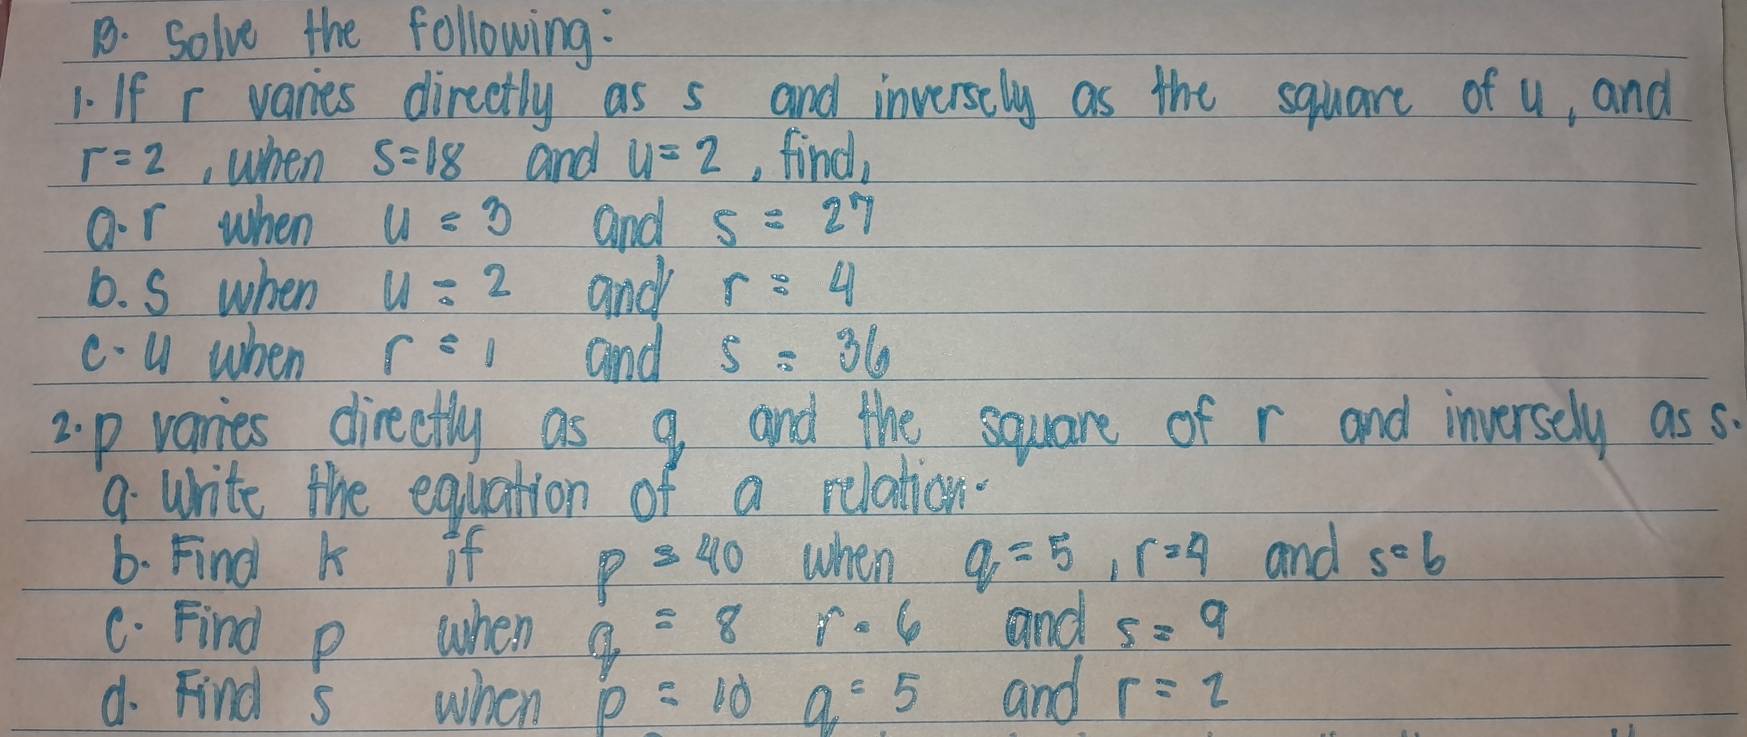 B. Solve the following:
1. If r varies directly as s and inversely as the square of u, and
r=2, when s=18 and u=2, find,
a. r when u = 3 and s = 27
b. s when u = 2 and r = 4
c. u when r = 1 and s = 36
2. p varies directly as q and the square of r and inversely as s.
a. Write the equation of a relation.
b. Find k if p = 40 when q = 5, r=4 and s=6
c. Find p when q = 8 r = 6 and s = 9
d. Find s when p = 10 q = 5 and r = 2